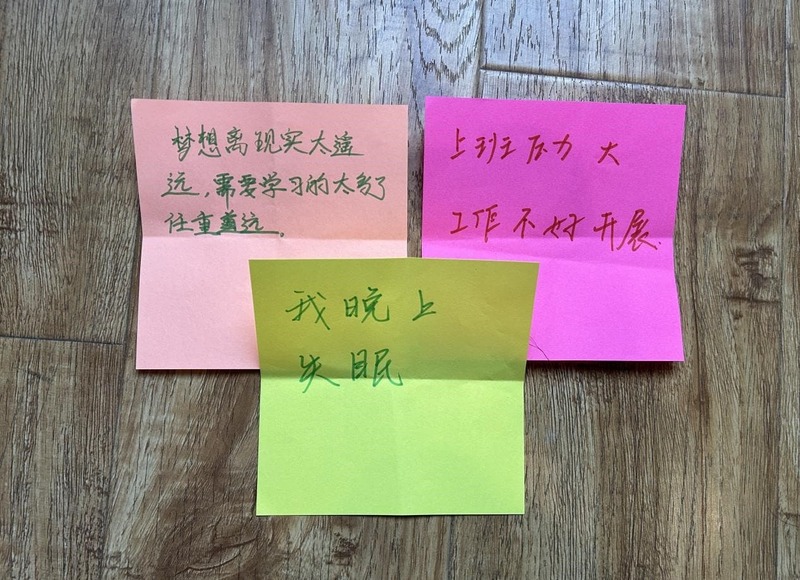 梦想离现实太遥
远,需要学习的太多了
任重道远。
上班压力 大
工作不好开展.
我晚上
失眠